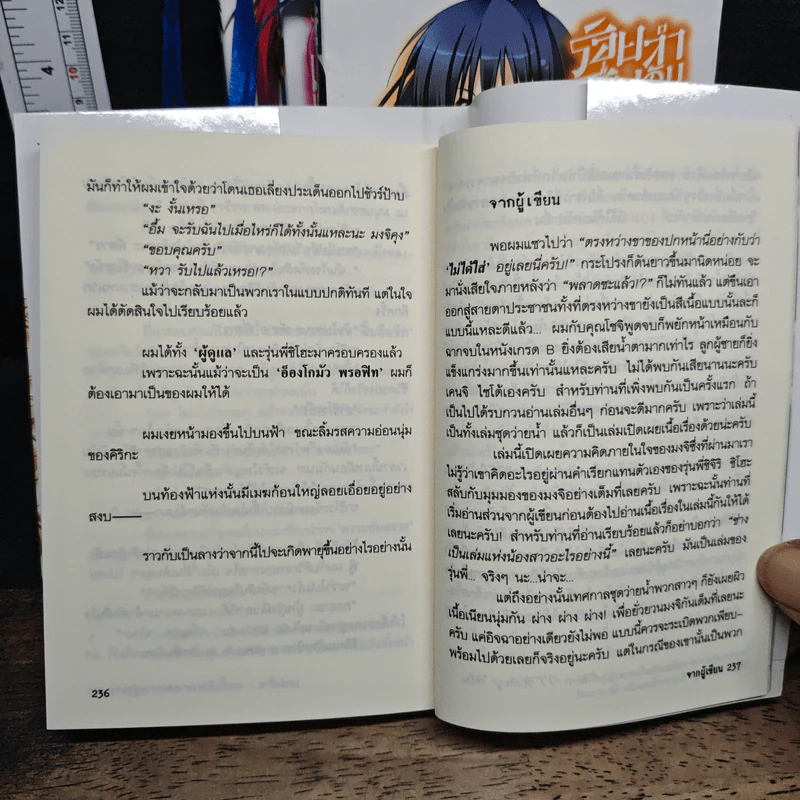 4
10
3
มันก็ทำให้ผมเข้าใจด้วยว่าโดนเธอเลี่ยงประเด็นออกไปชัวร์ป้าบ
“งะ งั้นเหรอ”
“อื้ม จะรับฉันไปเมื่อไหร่ก็ได้ทั้งนั้นแหละนะ มงจิคุง”
“ขอบคุณครับ”
“หวา รับไปแล้วเหรอ!?”
แม้ว่าจะกลับมาเป็นพวกเราในแบบปกติทันที แต่ในใจ
ผมได้ตัดสินใจไปเรียบร้อยแล้ว
ผมได้ทั้ง ‘ผู้ดูแล’ และรุ่นพี่ชิโฮะมาครอบครองแล้ว
เพราะฉะนั้นแม้ว่าจะเป็น ‘ฮ็องโกมัว พรอฟิท’ ผมก็
ต้องเอามาเป็นของผมให้ได้
ผมเงยหน้ามองขึ้นไปบนฟ้า ขณะลิ้มรสความอ่อนนุ่ม
ของคิริกะ
บนท้องฟ้าแห่งนั้นมีเมฆก้อนใหญ่ลอยเอื่อยอยู่อย่าง
สงบ——
ราวกับเป็นลางว่าจากนี้ไปจะเกิดพายุขึ้นอย่างไรอย่างนั้น
236
จากผู้เขียน
พอผมแซวไปว่า “ตรงหว่างขาของปกหน้านี่อย่างกับว่า
‘ไม่ได้ใส่’ อยู่เลยนี่ครับ!” กระโปรงก็ดันยาวขึ้นมานิดหน่อย จะ
มานั่งเสียใจภายหลังว่า “พลาดซะแล้ว!?” ก็ไม่ทันแล้ว แต่ขืนเอา
ออกสู่สายตาประชาชนทั้งที่ตรงหว่างขายังเป็นสีเนื้อแบบนั้นละก็
แบบนี้แหละดีแล้ว... ผมกับคุณโชจิพูดจบก็พยักหน้าเหมือนกับ
ฉากจบในหนังเกรด B ยิ่งต้องเสียน้ำตามากเท่าไร ลูกผู้ชายก็ยิ่ง
แข็งแกร่งมากขึ้นเท่านั้นแหละครับ ไม่ได้พบกันเสียนานนะครับ
เคนจิ ไซโต้เองครับ สำหรับท่านที่เพิ่งพบกันเป็นครั้งแรก ถ้า
เป็นไปได้รบกวนอ่านเล่มอื่นๆ ก่อนจะดีมากครับ เพราะว่าเล่มนี้
เป็นทั้งเล่มชุดว่ายน้ำ แล้วก็เป็นเล่มเปิดเผยเนื้อเรื่องด้วยน่ะครับ
เล่มนี้เปิดเผยความคิดภายในใจของมงจิซึ่งที่ผ่านมาเรา
ไม่รู้ว่าเขาคิดอะไรอยู่ผ่านคำเรียกแทนตัวเองของรุ่นพี่ชิจิริ ชิโฮะ
สลับกับมุมมองของมงจิอย่างเต็มที่เลยครับ เพราะฉะนั้นท่านที่
เริ่มอ่านส่วนจากผู้เขียนก่อนต้องไปอ่านเนื้อเรื่องในเล่มนี้กันให้ได้
เลยนะครับ! สำหรับท่านที่อ่านเรียบร้อยแล้วก็อย่าบอกว่า “ช่าง
เป็นเล่มแห่งน้องสาวอะไรอย่างนี้” เลยนะครับ มันเป็นเล่มของ
รุ่นพี่... จริงๆ นะ...น่าจะ...
แต่ถึงอย่างนั้นเทศกาลชุดว่ายน้ำพวกสาวๆ ก็ยังเผยผิว
เนื้อเนียนนุ่มกัน ผ่าง ผ่าง ผ่าง! เพื่อยั่วยวนมงจิกันเต็มที่เลยนะ
ครับ แค่อิจฉาอย่างเดียวยังไม่พอ แบบนี้ควรจะระเบิดพวกเพียบ-
พร้อมไปด้วยเลยก็จริงอยู่นะครับ แต่ในกรณีของเขานั้นเป็นพวก
จากผู้เขียน 237